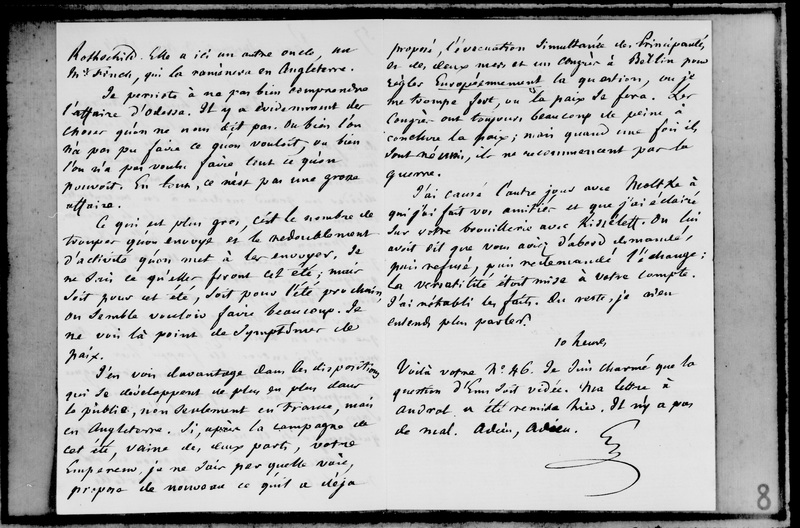 Rothschild. Elle a ici un autre oncle, un
Mr Finch, qui la ramènera en Angleterre.
Je persiste à ne pas bien comprendre
l'affaire d'Odessa. Il y a évidemment des
choses qu'on ne nous dit pas. Ou bien l'on
n'a pas pu faire ce qu'on vouloit, ou bien
l'on n'a pas voulu faire tout ce qu'on
pouvoit. En tout, ce n'est pas une grosse
affaire.
Ce qui est plus gros, c'est le nombre de
troupes qu'on envoye et le redoublement
d'activité qu'on met à les envoyer. Je
ne sais ce qu'elles feront cet été; mais
soit pour cet été, soit pour l'été prochain,
on semble vouloir faire beaucoup. Je
ne vois là point de symptômes de
paix.
J'en vois davantage dans les dispositions
qui se développent de plus en plus dans
le public, non seulement en France, mais
en Angleterre. Si, après la campagne de
cet été, vaine des deux parts, votre
Empereur, je ne sais par quelle voie,
propose de nouveau ce qu'il a déjà
proposé, l'évacuation simultanée des Principautés
et des deux mers et un congrès à Berlin pour
régler Européennement la question, ou je
me trompe fort, ou la paix se fera. Les
Congrès ont toujours beaucoup de peine à
conclure la paix; mais quand une fois ils
sont réunis, ils ne recommencent pas la
guerre.
J'ai causé l'autre jour avec Moltke à
qui j'ai fait vos amitiés et que j'ai éclairé
sur votre brouillerie avec Kisséleff. On lui
avoit dit que vous aviez d'abord demandé,
puis refusé, puis redemandé l'échange;
la versatilité étoit mise à votre compte.
J'ai rétabli les faits. Du reste, je n'en
entends plus parler.
10 heures
Voilà votre No 46. Je suis charmé que la
question d'Ems soit vidée. Ma lettre à
Andral a été remise hier. Il n'y a pas
de mal. Adieu, Adieu.
8